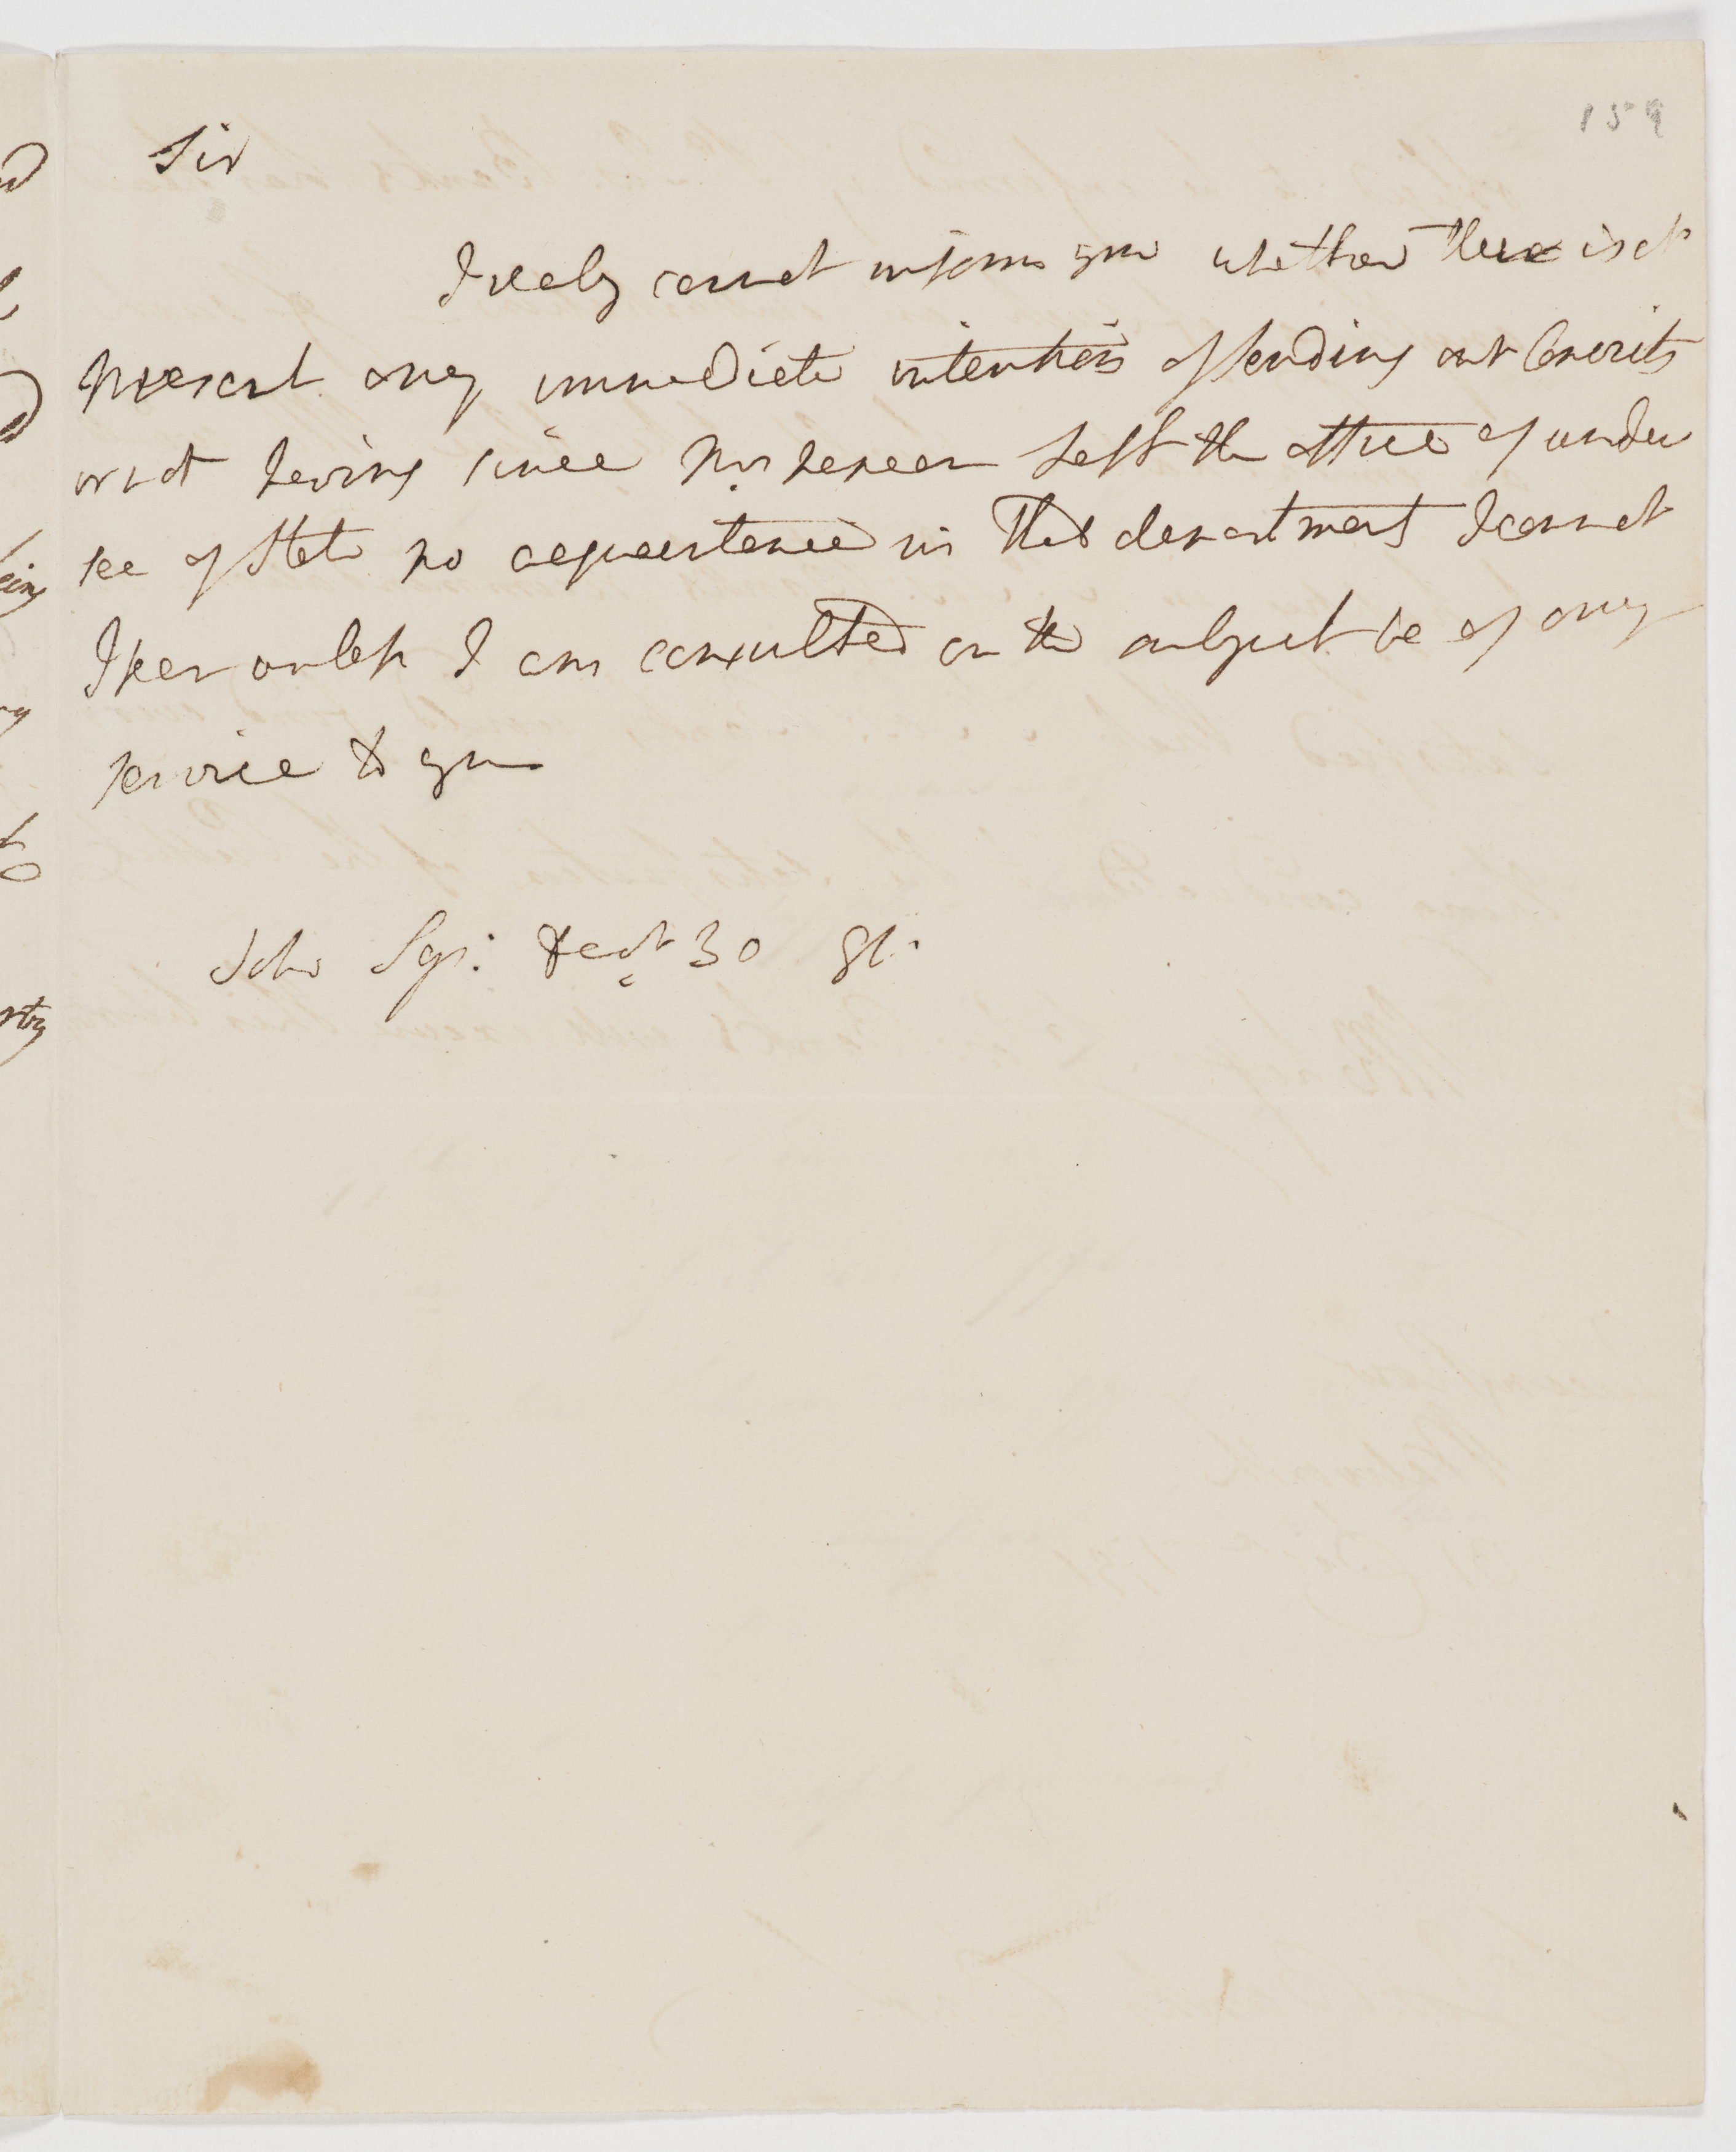 159
Sir
I realy cannot inform you whether there is at
present any immediate intention of sending out Convicts
or not having since Mr Nepean Left the office of under
sec of State no acquaintance in that department I cannot
I fear unless I am consulted on the subject be of any
service to you
Soho Sqr: Decr 30 91